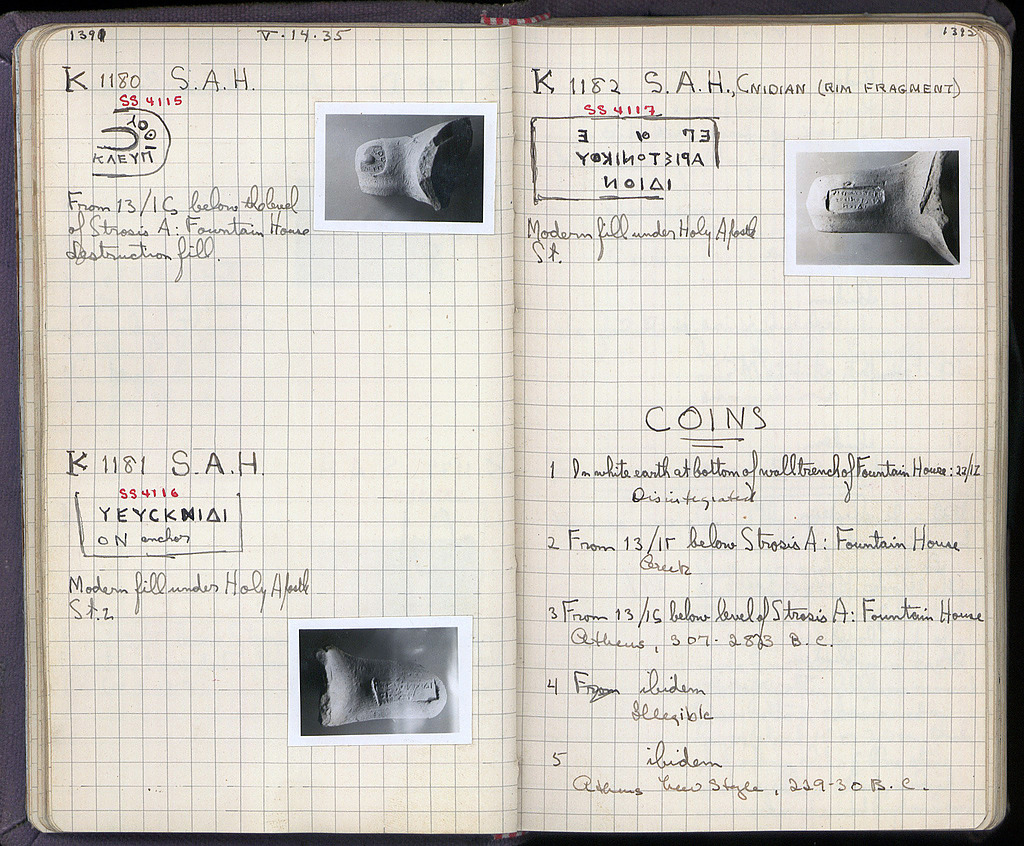 1391
V·14·35
K 1180 S.A.H.
SS 4115
ΚΛΕΥΠ
From 13/ΙϚ below the level
of Strosis A: Fountain House
destruction fill.
K 1181 S.A.H.
SS 4116
ΥΕΥΣΚΝΙΔΙ
ΟΝ anchor
Modern fill under Holy Apostle
St.
1392
K 1182 S.A.H., CNIDIAN (RIM FRAGMENT)
SS 4117
ΕΠ ΙΟ Ε
ΑΡΙΣΤΟΝΙΚΟΥ
ΙΔΙΟΝ
Modern fill under Holy Apostle
St.
COINS
1 In white earth at bottom of wall trench of Fountain House: 22/ΙΖ
Disintegrated
2 From 13/ΙΓ below Strosis A: Fountain House
Greek
3 From 13/ΙϚ below level of Strosis A: Fountain House
Athens, 307-283 B.C.
4 From ibidem
Illegible
5 ibidem
Athens New Style, 229-30 B.C.